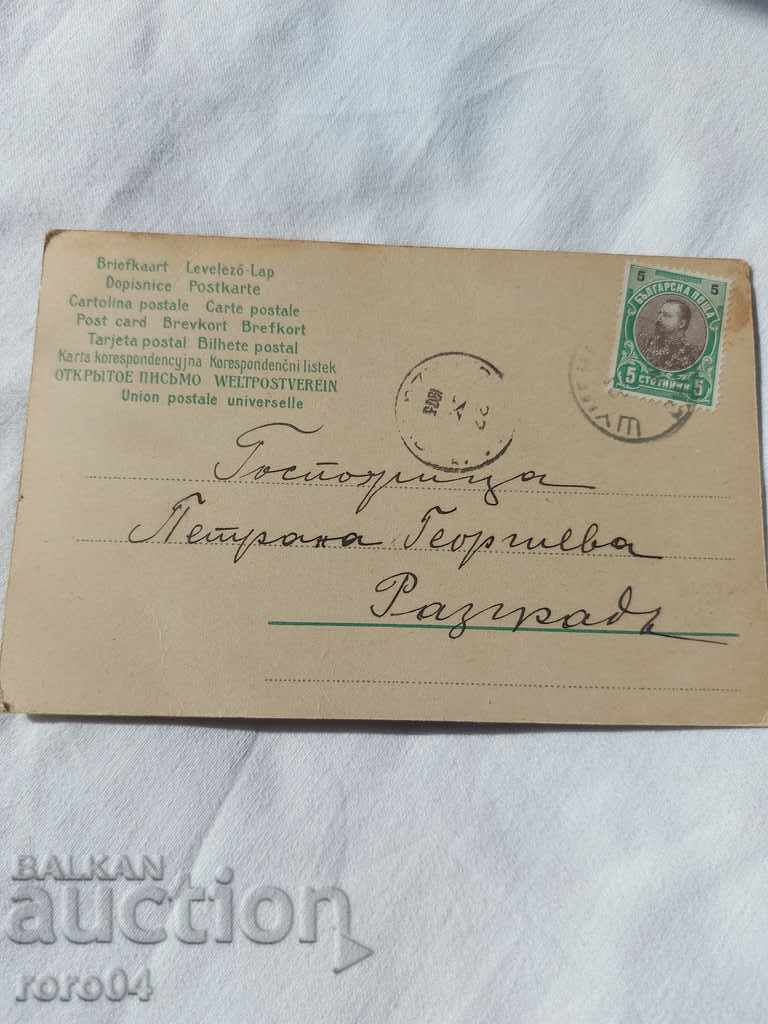 Briefkaart Levelező-Lap
Dopisnice Postkarte
Cartolina postale Carte postale
Post card Brevkort Brefkort
Tarjeta postal Bilhete postal
Karta korespondencyjna Korespondenční listek
ОТКРЫТОЕ ПИСЬМО WELTPOSTVEREIN
Union postale universelle
5 5
БЪЛГАРСКА ПОЩА
5 СТОТИНКИ 5
Госпожица
Петрана Георгиева
Разградъ
BALKAN
auction
roro04